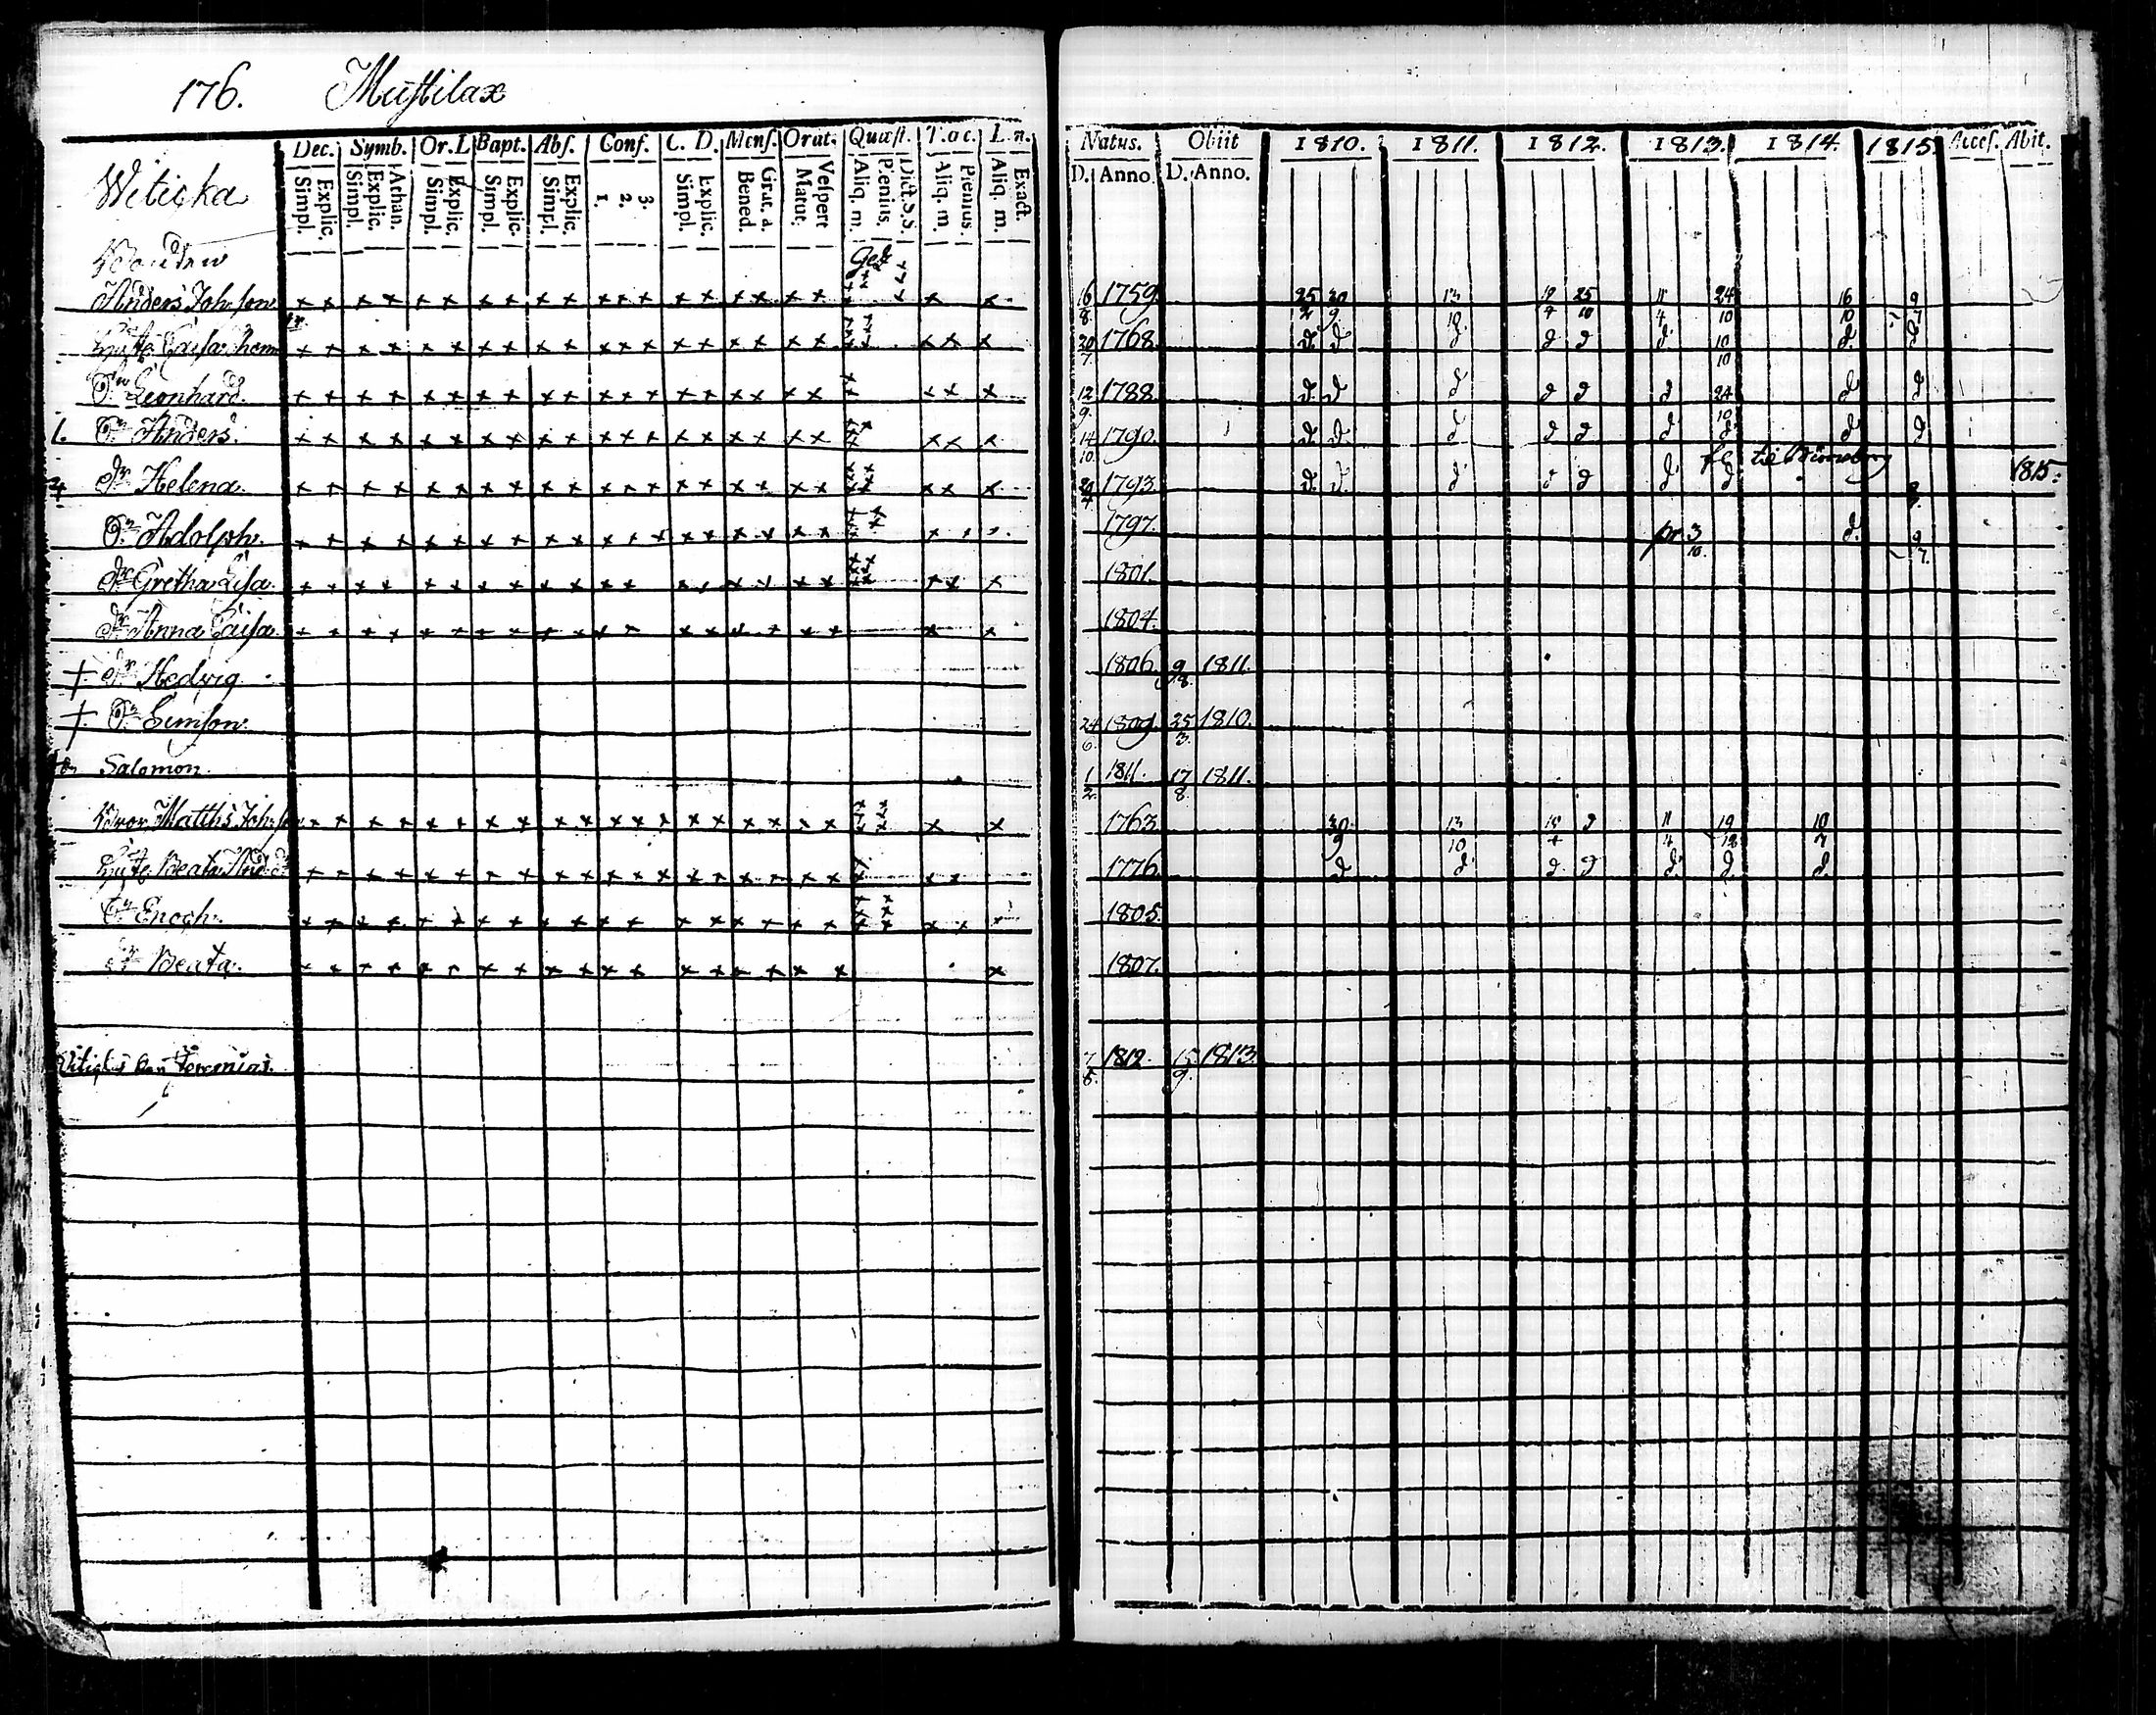 176. Mustilax
Dec. Symb. Or. D. Bapt. Abs. Conf. C. D. Mens. Orat. Quæst. T. œc. L. n.
Simpl. Explic. Simpl. Explic. Athan. Simpl. Explic. Simpl. Explic. Simpl. Explic. 1. 2. 3. Simpl. Explic. Bened. Grat. a. Matut. Vespert Aliq. m. Plenius. Dict. S. S. Aliq. m. Plenius Aliq. m. Exact.
Natus. Obiit 1810. 1811. 1812. 1813. 1814. 1815. Acces. Abit.
D. Anno. D. Anno.
Witicka
Bonden
Anders Joh:son 16/8 1759 25/2 30/9 13/10 25/10 11/4 24/10 16/10 9/7
Hust: Caisa 20/7 1768 d. d d d d d. 10/10 d. d
Sn Leonhard. 12/9 1788 d. d d d d d 24/10 d d
1. Sn Anders. 14/10 1790. d. d. d d d d d d d
Dr Helena. 1793 d. d. d d d d d till 1815.
Sn Adolph. 1797. pr. 3/10. d. 9/7.
Dr Gretha Lisa 1801.
Dr Anna Caisa 1804.
+ Dr Hedvig 1806 9/8 1811.
+ Sn Simson 24/6 1809. 25/3 1810.
Salomon. 1/2 1811. 17/8 1811.
Bror. Matths Joh:son 1763 30/9 13/10 d 11/4 19/7
Hust: Beata 1776 d d d d d. d. d.
Sn Enoch. 1805.
Dr Beata. 1807.
Jeremias. 7/8 1812. 15/9 1813.